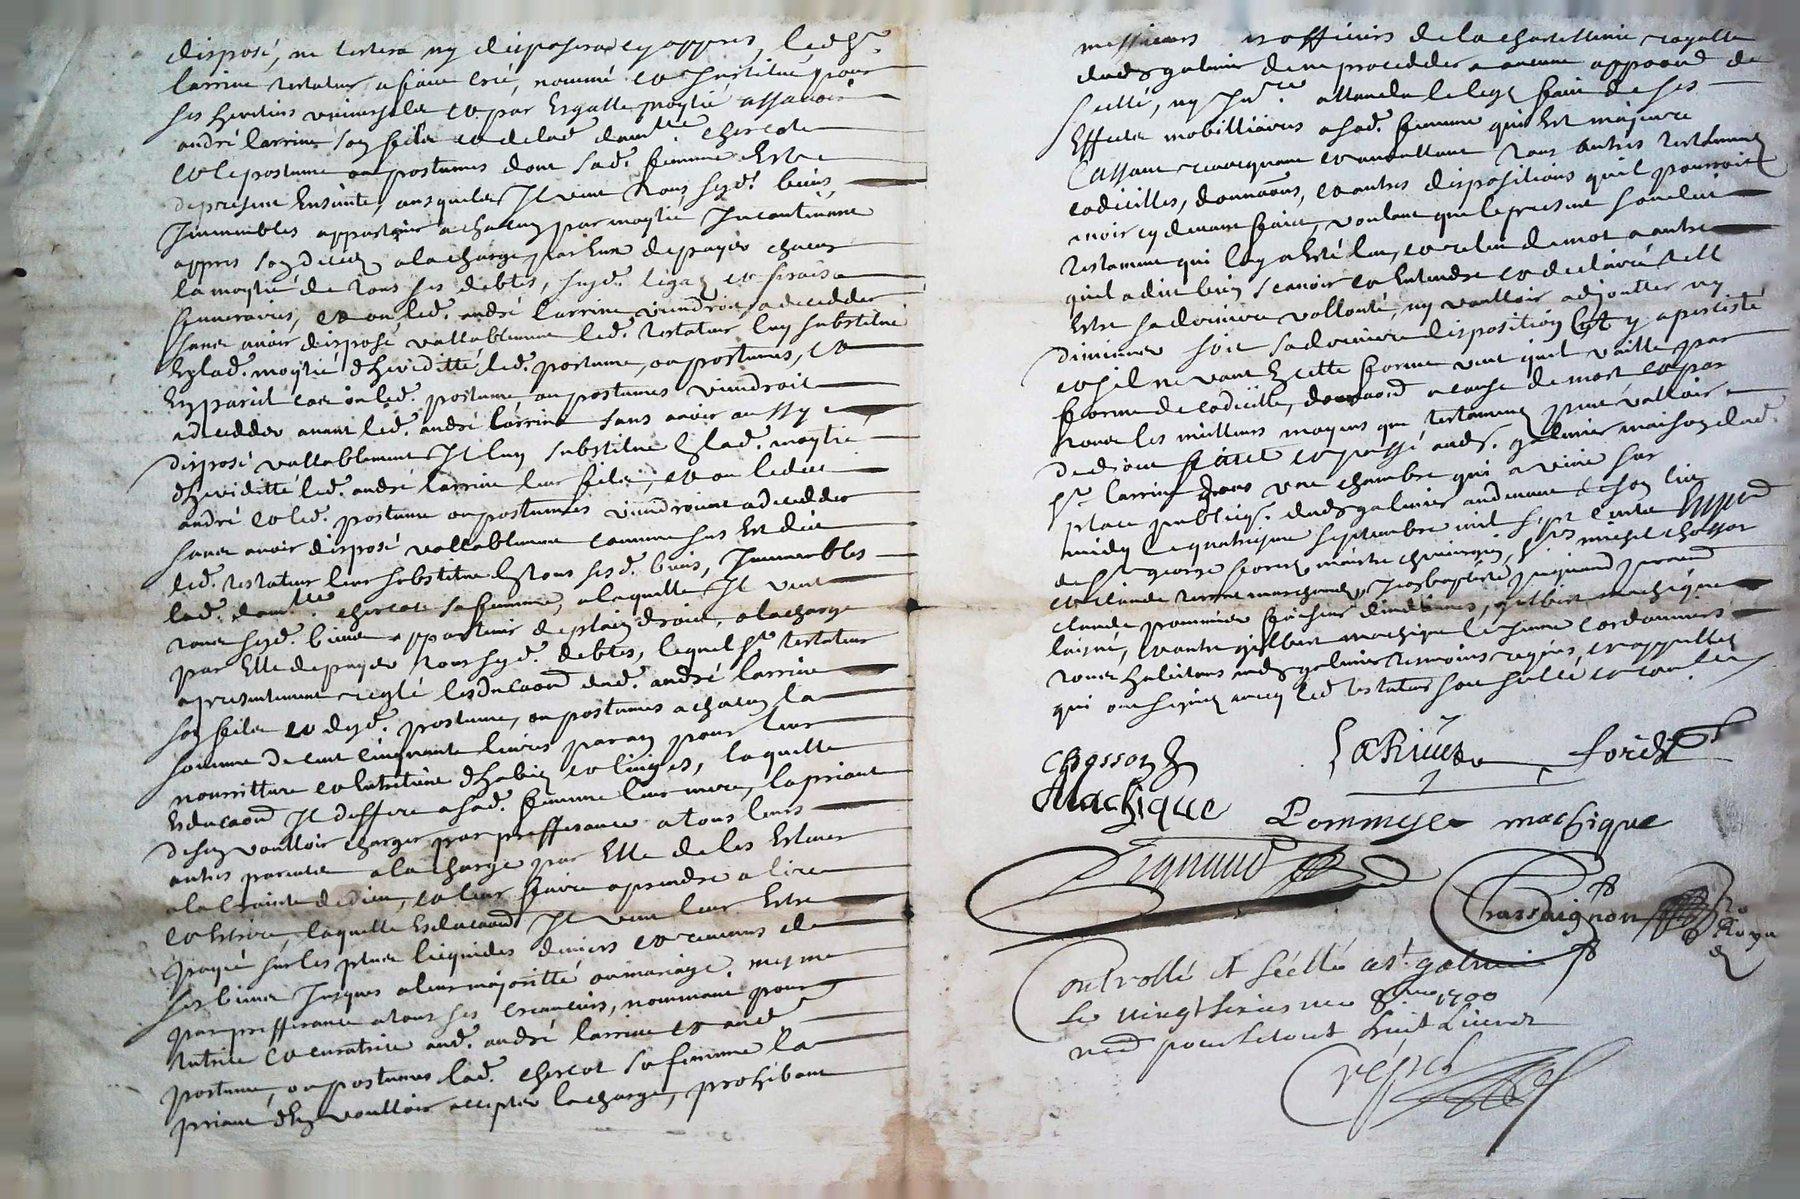 disposé, ne testera ny disposera cy appres, led. Sr.
larrive testateur a faict créé, nommé et Institué pour
ses heritiers universels et par Esgalle moytié assavoir
andré larrive son fils et de lad. damlle chercot
et le postume ou postumes dont sad. femme Est
de present Ensainte, ausquels Il veut tous sesd. biens,
Immeubles appartenir a chacun par moytié Incontinent
appres son deces a la charge par Eux de payer chacun
la moytié de tous ses debtes, susd. legaz et fraix
funeraires, et ou led. andré larrive viendroit a decedder
sans avoir disposé vallablement led. testateur luy substitue
En lad. moytié d'hereditté led. postume, ou postumes, et
En pareil cas ou led. postume ou postumes viendroit
a decedder avant led. andré larrive sans avoir aussy
disposé vallablement Il luy substitue En lad. moytié
d'hereditté led. andré larrive leur frere, et ou ledict
andré et led. postume ou postumes viendroient a decedder
sans avoir disposé vallablement comme sus Est dit
led. testateur leur substitue En tous sesd. biens, Immeubles
lad. damlle chercot sa femme, a laquelle Il veut
tous sesd. biens appartenir de plain droict, a la charge
par Elle de payer tous sesd. debtes, lequel Sr. testateur
a presentement reglé l'Esducaon dud. andré larrive
son fils et desd. postume, ou postumes a chacun la
somme de cent cinquante livres par an pour leur
nourriture et Entretient d'habits et linges, laquelle
Esducaon Il deffere a sad. femme leur mere, la priant
de s'en voulloir charger par prefferance a tous leurs
autres parents a la charge par Elle de les Eslever
a la Crainte de dieu, et leur faire aprendre a lire
et Escrire, laquelle Esducaon Il veut leur Estre
payé sur les plus liquides deniers et revenus de
ses biens Jusques a leur majoritté ou mariage, mesme
par prefferance a tous ses creanciers, nommant pour
tutrice et curatrice aud. andré larrive et aud.
postume, ou postumes lad. chercot sa femme la
priant d'En voulloir accepter la charge, prohibant
messieurs les officiers de la chastellenie royalle
dud. St galmier de ne procedder a aucune apposon de
scellé, ny Inre. attandu le legz fait de ses
Effects mobilliaires a sad. femme qui Est majeure
Cassant revocquant et annullant tous autres testaments
codicilles, donnaons, et autres dispositions qu'il pourroit
avoir cy devant faict, voulant que le present son dict
testament qui luy a Esté leu, et releu de mot a autre
qu'il a dit bien scavoir et Entendre et declairé tell
Estre sa derniere vollonté, ny voulloir adjoutter ny
diminuer soit sa derniere disposition Et y a persisté
et s'il ne vaut En cette forme veut qu'il vaille par
forme de codicille, donnaon a cause de mort et par
tous les meilleurs moyens que testament peut valloir
dud. jour faict et passé aud St. galmier maison dud.
Sr. larrive dans une chambre qui a viue sur
place publicq. dud St galmier
midy le quatriesme septembre mil sept cents
de Sr george forest maitre chirurgien, Srs michel chosson
et claude marchands, Jean baptiste pignard
claude pommier, gilbert machique
laisné, et autre gilbert machique le jeune cordonniers
tous habitans aud St galmier tesmoins requis, et appellez
qui ont signez avecq led. testateur
chosson
Larrive
forest
Machique
Pommyer
machique
Pignard
Chassaignon
No Roya
Controllé et scéllé a St. galmier
le vingt sixies me 8bre 1700
reçu pour le tout huit Livres